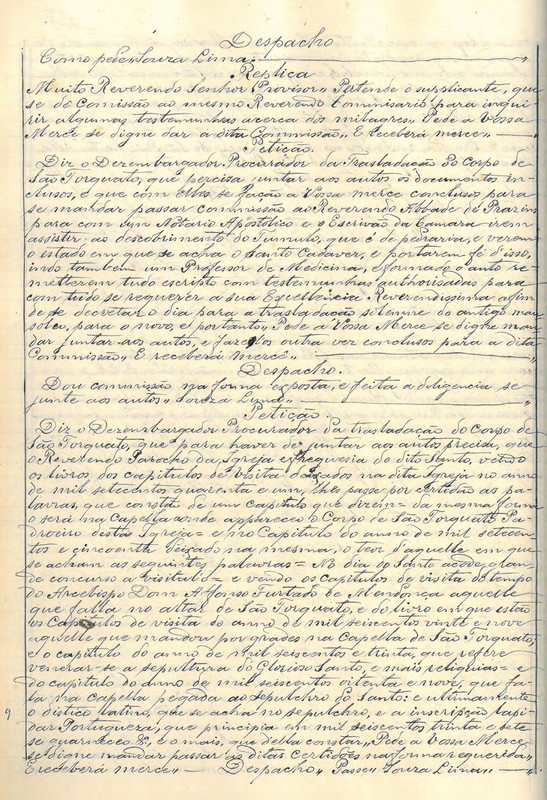 Despacho
Como pede Souza Lima.
Replica
Muito Reverendo Senhor Provisor, Pertende o supplicante, que
se de Comissão ao mesmo Reverendo Commissario para inqui-
rir algumas testemunhas acerca dos milagres, Pede a Vossa
Merce se digne dar a dita Commissão, E receberá merce
Petição.
Diz o Dezembargador Procurador da Trasladação do Corpo de
São Torquato, que percisa juntar aos autos os documentos in-
clusos, e que com elles se fação a Vossa merce conclusos para
se mandar passar commissão ao Reverendo Abbade de Prazins
para com um Notario Apostolico e o Escrivão da Camara irem
assistir ao descobrimento do Tumulo, que é de pedraria, e verem
o estado em que se acha o Santo Cadaver, e portarem fé d'isso,
indo tambem um Professor de Medicina, e formado o auto re-
metterem tudo escripto com testemunhas authorisadas para
com tudo se requerer a sua Excellencia Reverendissima afim
de se decretar o dia para a trasladação solemne do antigo mau-
soleo, para o novo, e portanto, Pede a Vossa Merce se digne man-
dar juntar aos autos, e fazel-os outra vez conclusos para a dita
Commissão, E receberá Mercê
Despacho.
Dou commissão na forma exposta, e feita a diligencia se
junte aos autos, Souza Lima
Petição.
Diz o Dezembargador Procurador da trasladação do Corpo de
São Torquato, que para haver de juntar aos autos precisa, que
o Reverendo Parocho da Igreja e freguesia do dito Santo, vendo
os livros dos capitulos de visita deixados na dita Igreja no anno
de mil setecentos quarenta e um, lhe passe por certidão as pa-
lavras, que constão de um capitulo que dizem = da mesma forma
o será na Capella aonde appareceo o Corpo de São Torquato Pa-
droeiro desta Igreja = e no Capitulo do anno de mil setecen-
tos e cincoenta deixado na mesma, o teor d'aquelle em que
se acham as seguintes palavras = No dia do Santo acode gran-
de concurso a visital-o = e vendo os capitulos de visita do tempo
do Arcebispo Dom Affonso Furtado de Mendonça aquelle
que falla no altar de São Torquato, e do livro em que estão
os Capitulos de visita do anno de mil seiscentos vinte e nove
aquelle que mandou por grades na Capella de São Torquato,
e o capitulo do anno de mil seiscentos e trinta, que refere
venerar-se a sepultura do Glorioso Santo, e mais reliquias = e
do capitulo do anno de mil seiscentos oitenta e nove, que fa-
la na capella pegada ao sepulchro do Santo: e ultimamente
o distico latino, que se acha no sepulchro, e a inscripção lapi-
dar Portugueza, que principia em mil seiscentos trinta e sete
se guarneceo &, e o mais, que della constar, Pede a Vossa Merce
se digne mandar passar as ditas certidões na forma requerida,
E receberá merce — Despacho, Passe, Souza Lima